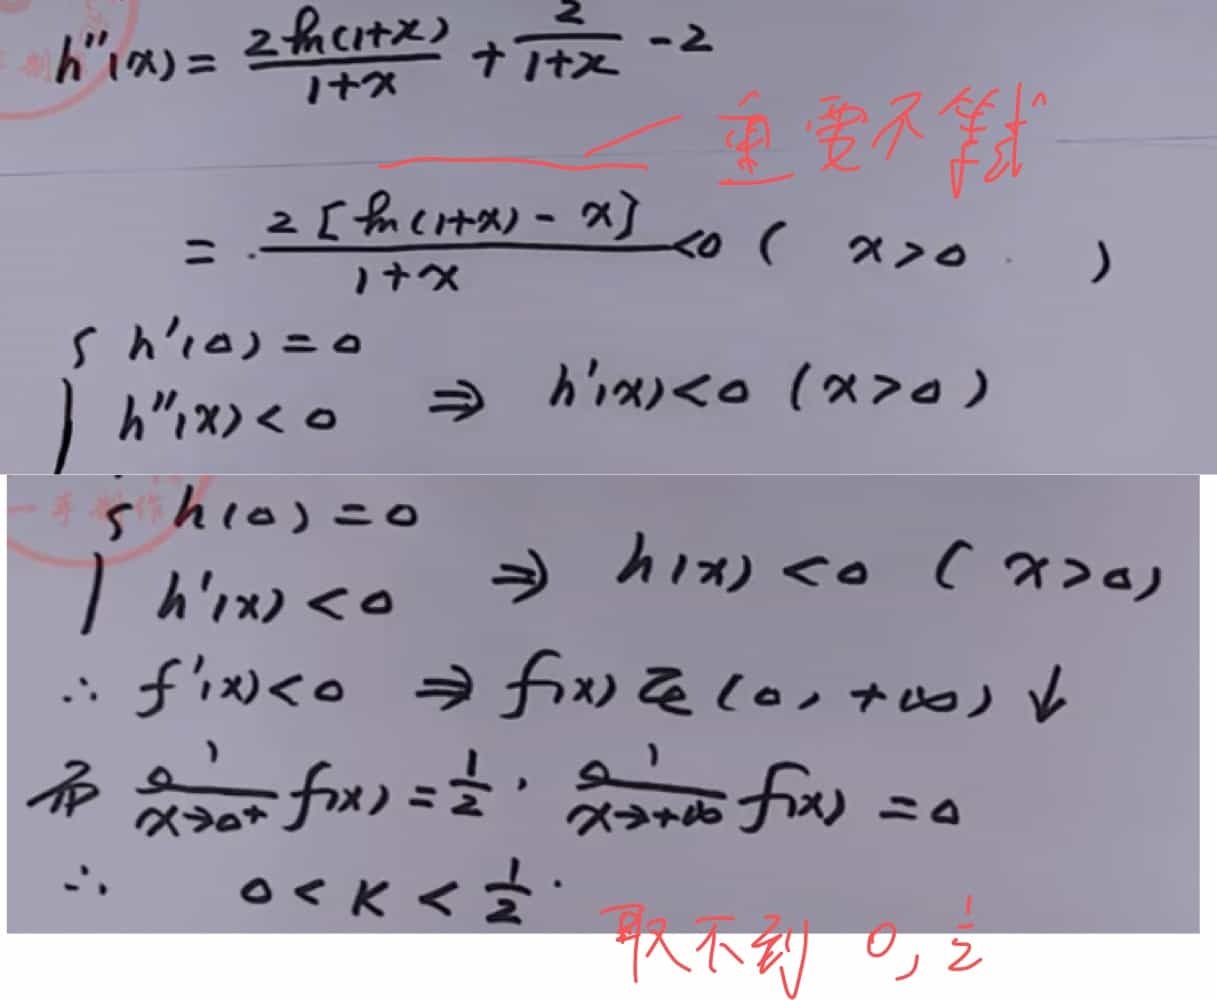 h''(x) = 2ln(1+x)/(1+x) + 2/(1+x) - 2
重要不等式
= 2[ln(1+x) - x]/(1+x) < 0 ( x > 0 )
{ h'(0) = 0
h''(x) < 0 ⇒ h'(x) < 0 (x > 0)
一手制作
{ h(0) = 0
h'(x) < 0 ⇒ h(x) < 0 ( x > 0 )
∴ f'(x) < 0 ⇒ f(x) 在 (0, +∞) ↓
而 lim x→0+ f(x) = 1/2 , lim x→+∞ f(x) = 0
∴ 0 < K < 1/2 .
取不到 0, 1/2